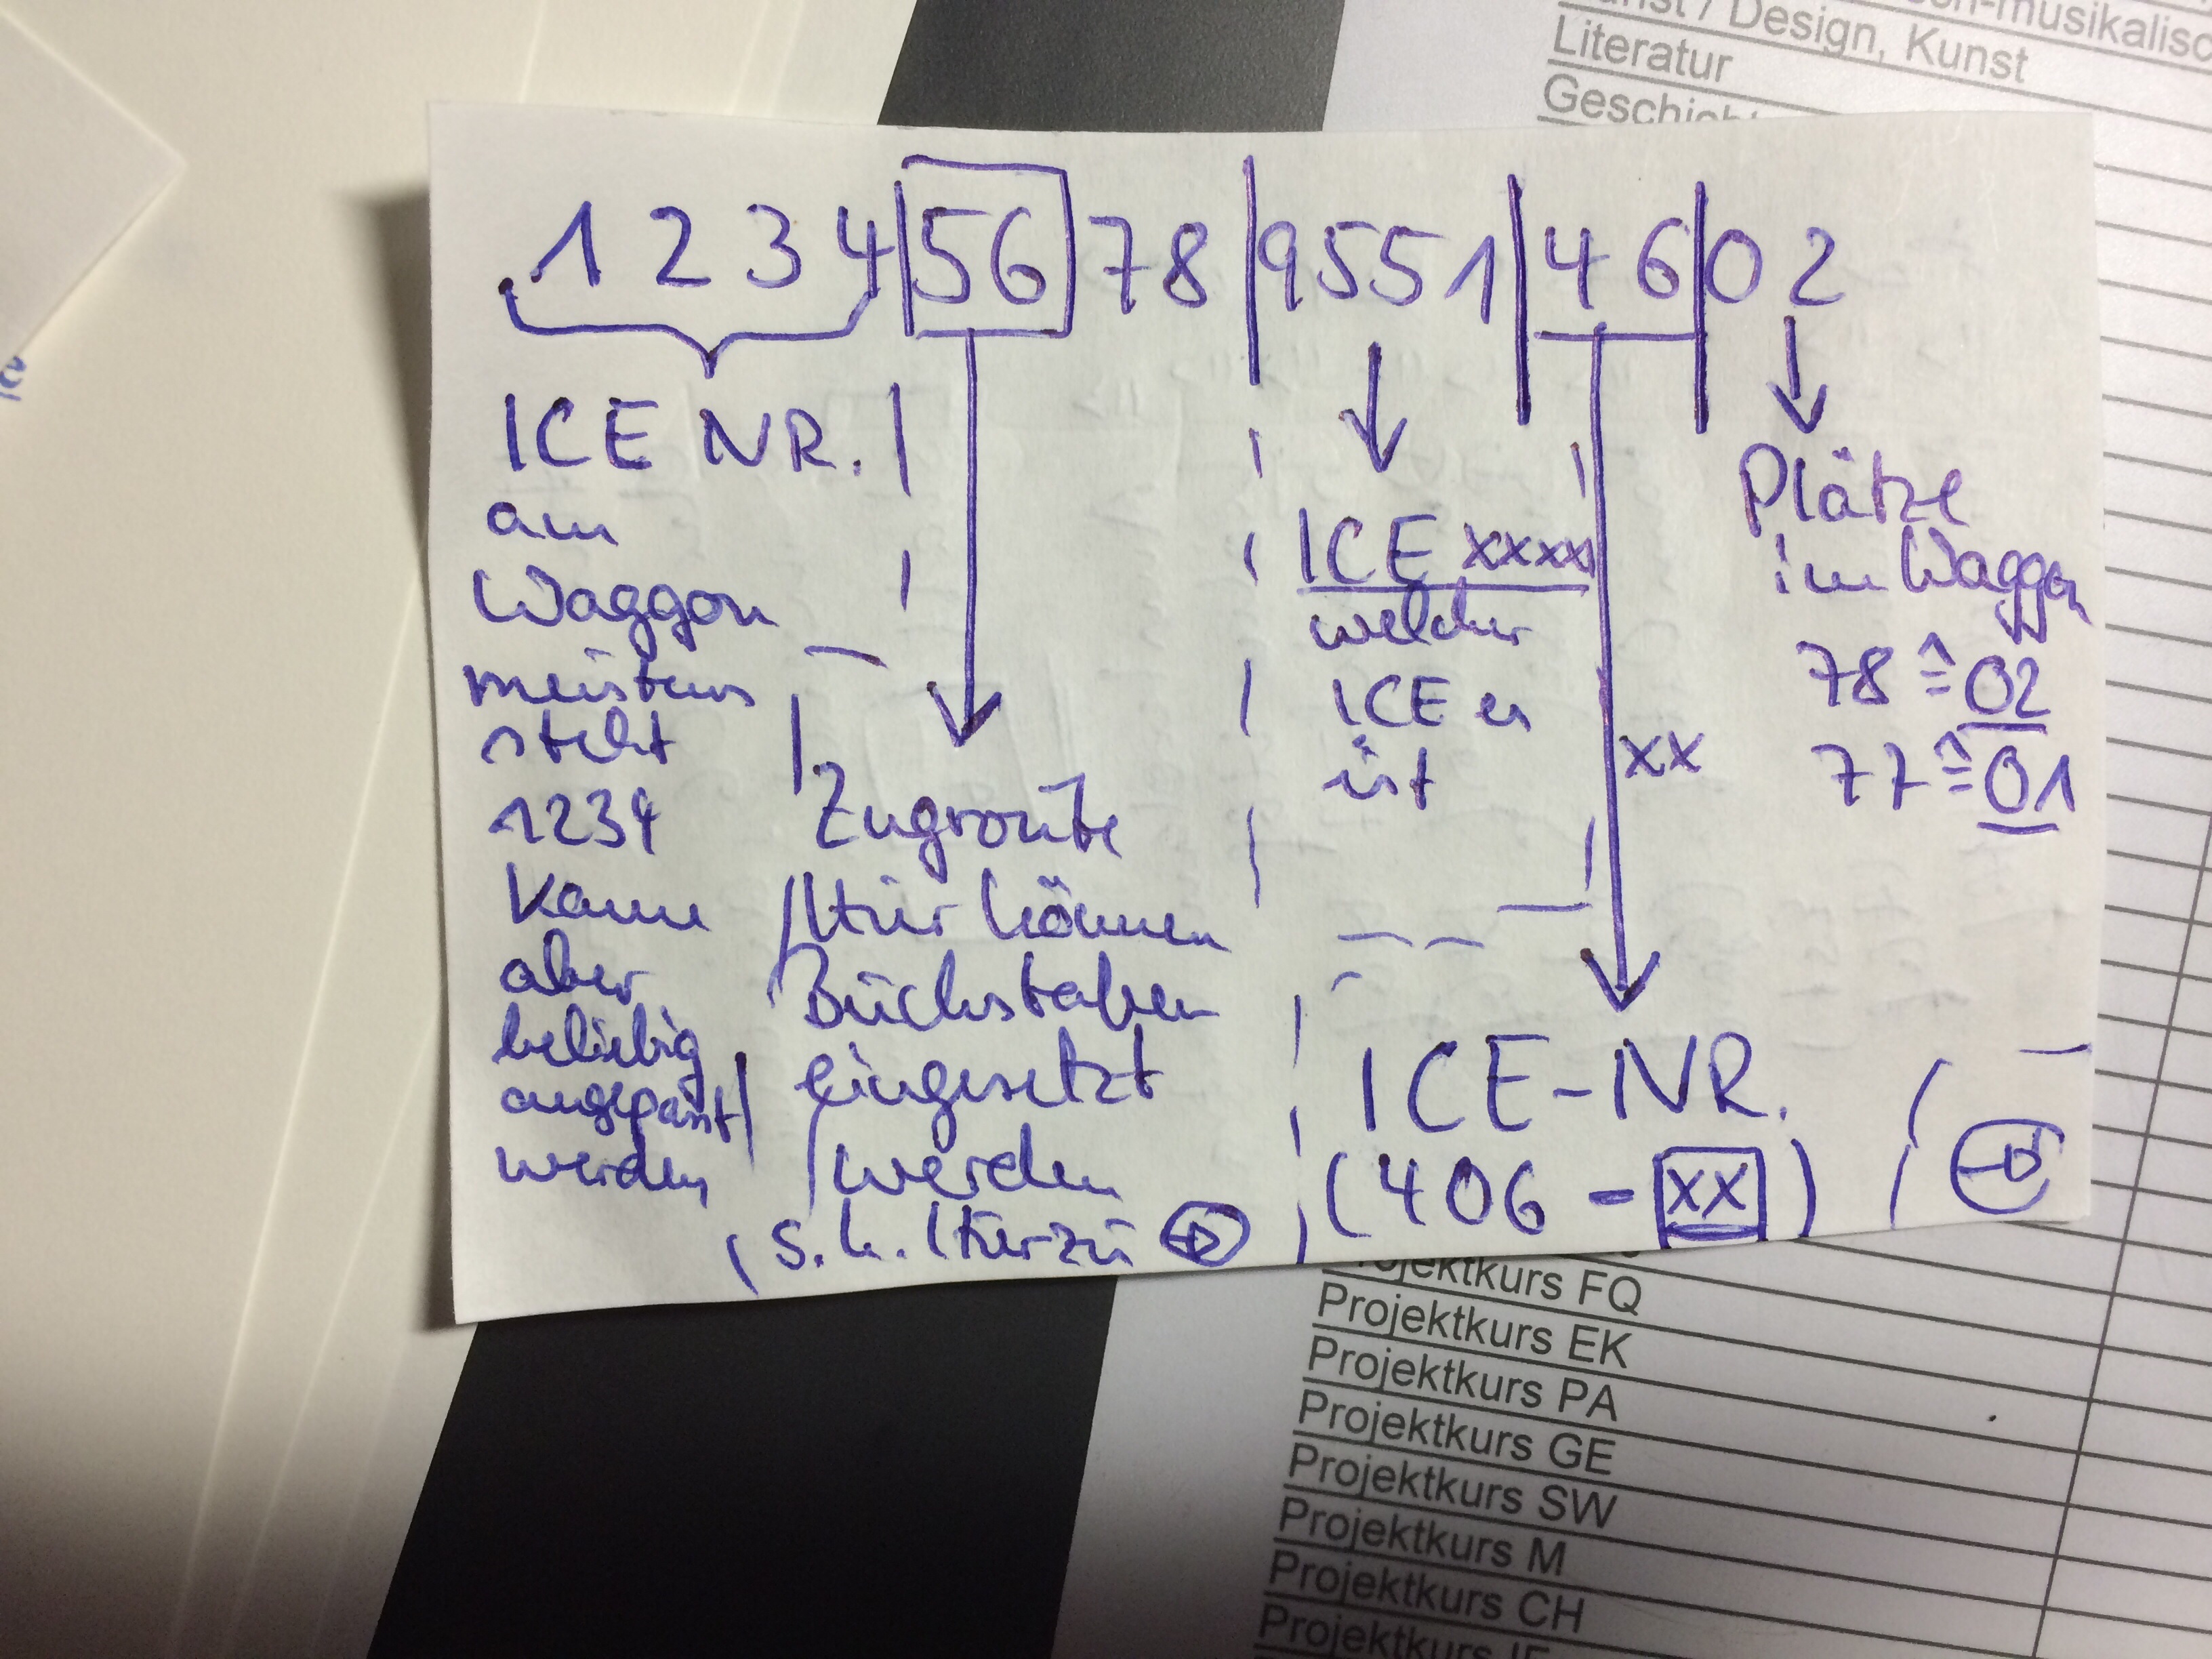 Kunst / Design, Kunst
Literatur
1 2 3 4 | 56 78 | 9551 | 4 6 | 0 2
ICE NR.
am
Waggon
meistens
steht
1234
Kann
aber
beliebig
angepasst
werden
Zugroute
Hier können
Buchstaben
eingesetzt
werden
s. h. Hierzu
ICE xxxx
welcher
ICE es
ist
xx
ICE-NR.
(406 - xx)
Plätze
im Waggon
78 ≙ 02
77 ≙ 01
Projektkurs FQ
Projektkurs EK
Projektkurs PA
Projektkurs GE
Projektkurs SW
Projektkurs M
Projektkurs CH
Projektkurs